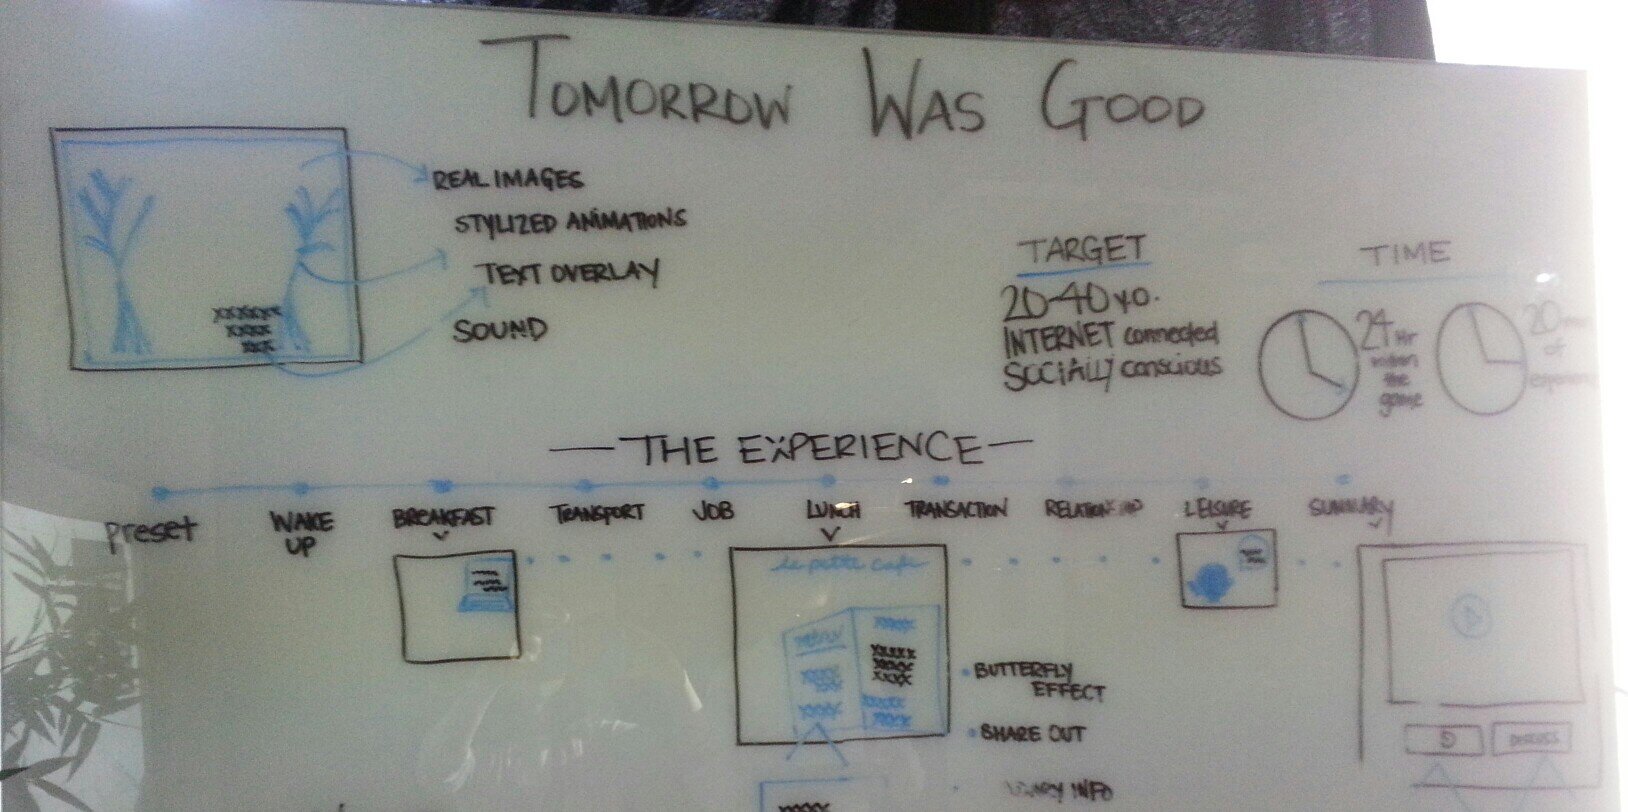 TOMORROW WAS GOOD
REAL IMAGES
STYLIZED ANIMATIONS
TEXT OVERLAY
SOUND
XXXXXX
XXXX
XXX
TARGET
20-40 y.o.
INTERNET connected
SOCIALLY conscious
TIME
24 Hr
within
the
game
20
of
— THE EXPERIENCE —
Preset
WAKE
UP
BREAKFAST
TRANSPORT
JOB
LUNCH
TRANSACTION
RELATIONSHIP
LEISURE
SUMMARY
le petite cafe
XXXXX
XXXX
XXXX
BUTTERFLY
EFFECT
SHARE OUT
INFO